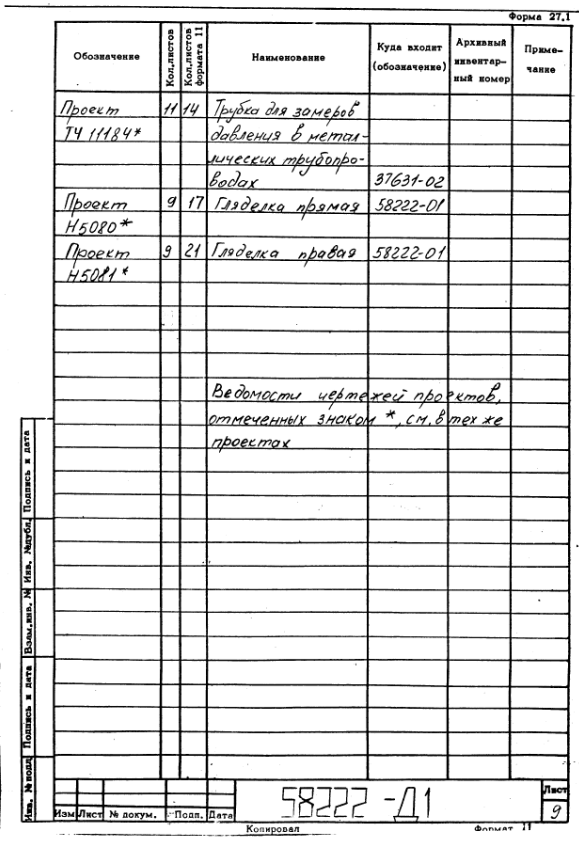 Форма 27.1
Обозначение
Кол.листов
Кол.листов формата 11
Наименование
Куда входит (обозначение)
Архивный инвентарный номер
Примечание
Проект 11 14 Трубка для замеров
ТЧ 11184* давления в метал-
лических трубопро-
водах 37631-02
Проект 9 17 Гляделка прямая 58222-01
Н5080*
Проект 9 21 Гляделка правая 58222-01
Н5081*
Ведомости чертежей проектов,
отмеченных знаком *, см. в тех же
проектах
Инв. № подл
Подпись и дата
Взам.инв. №
Инв. №дубл.
Подпись и дата
Изм Лист № докум. Подп. Дата
58222-Д1
Лист
9
Копировал Формат 11